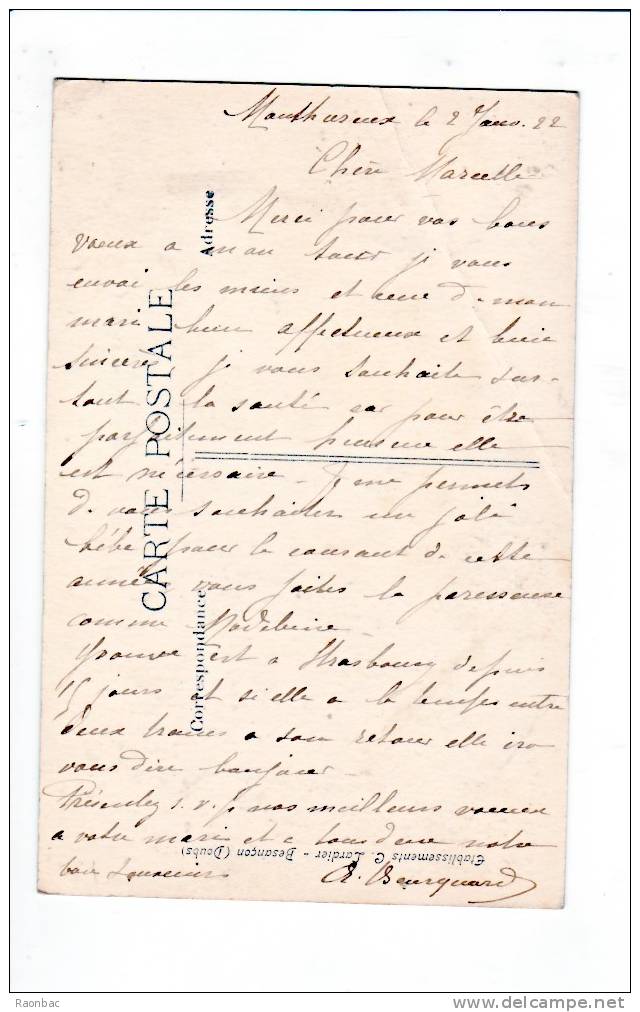 Monthureux le 2 Janv. 22
Chère Marcelle
Merci pour vos bons
vœux a mon tour je vous
envoi les miens et ceux de mon
mari bien affectueux et bien
sincères je vous souhaite sur-
tout la santé car pour être
parfaitement heureuse elle
est nécessaire - Je me permets
de vous souhaiter un joli
bébé pour le courant de cette
année vous faites la paresseuse
comme Madeleine -
Yvonne est a Strasbourg depuis
15 jours et si elle a le temps entre
deux trains a son retour elle ira
vous dire bonjour -
Présentez s. v. p nos meilleurs voeux
a votre mari et a tous deux notre
bon souvenir
Bourquard
CARTE POSTALE
Correspondance
Adresse
Etablissements C. Lardier - Besançon (Doubs)
Raonbac
delcampe.net